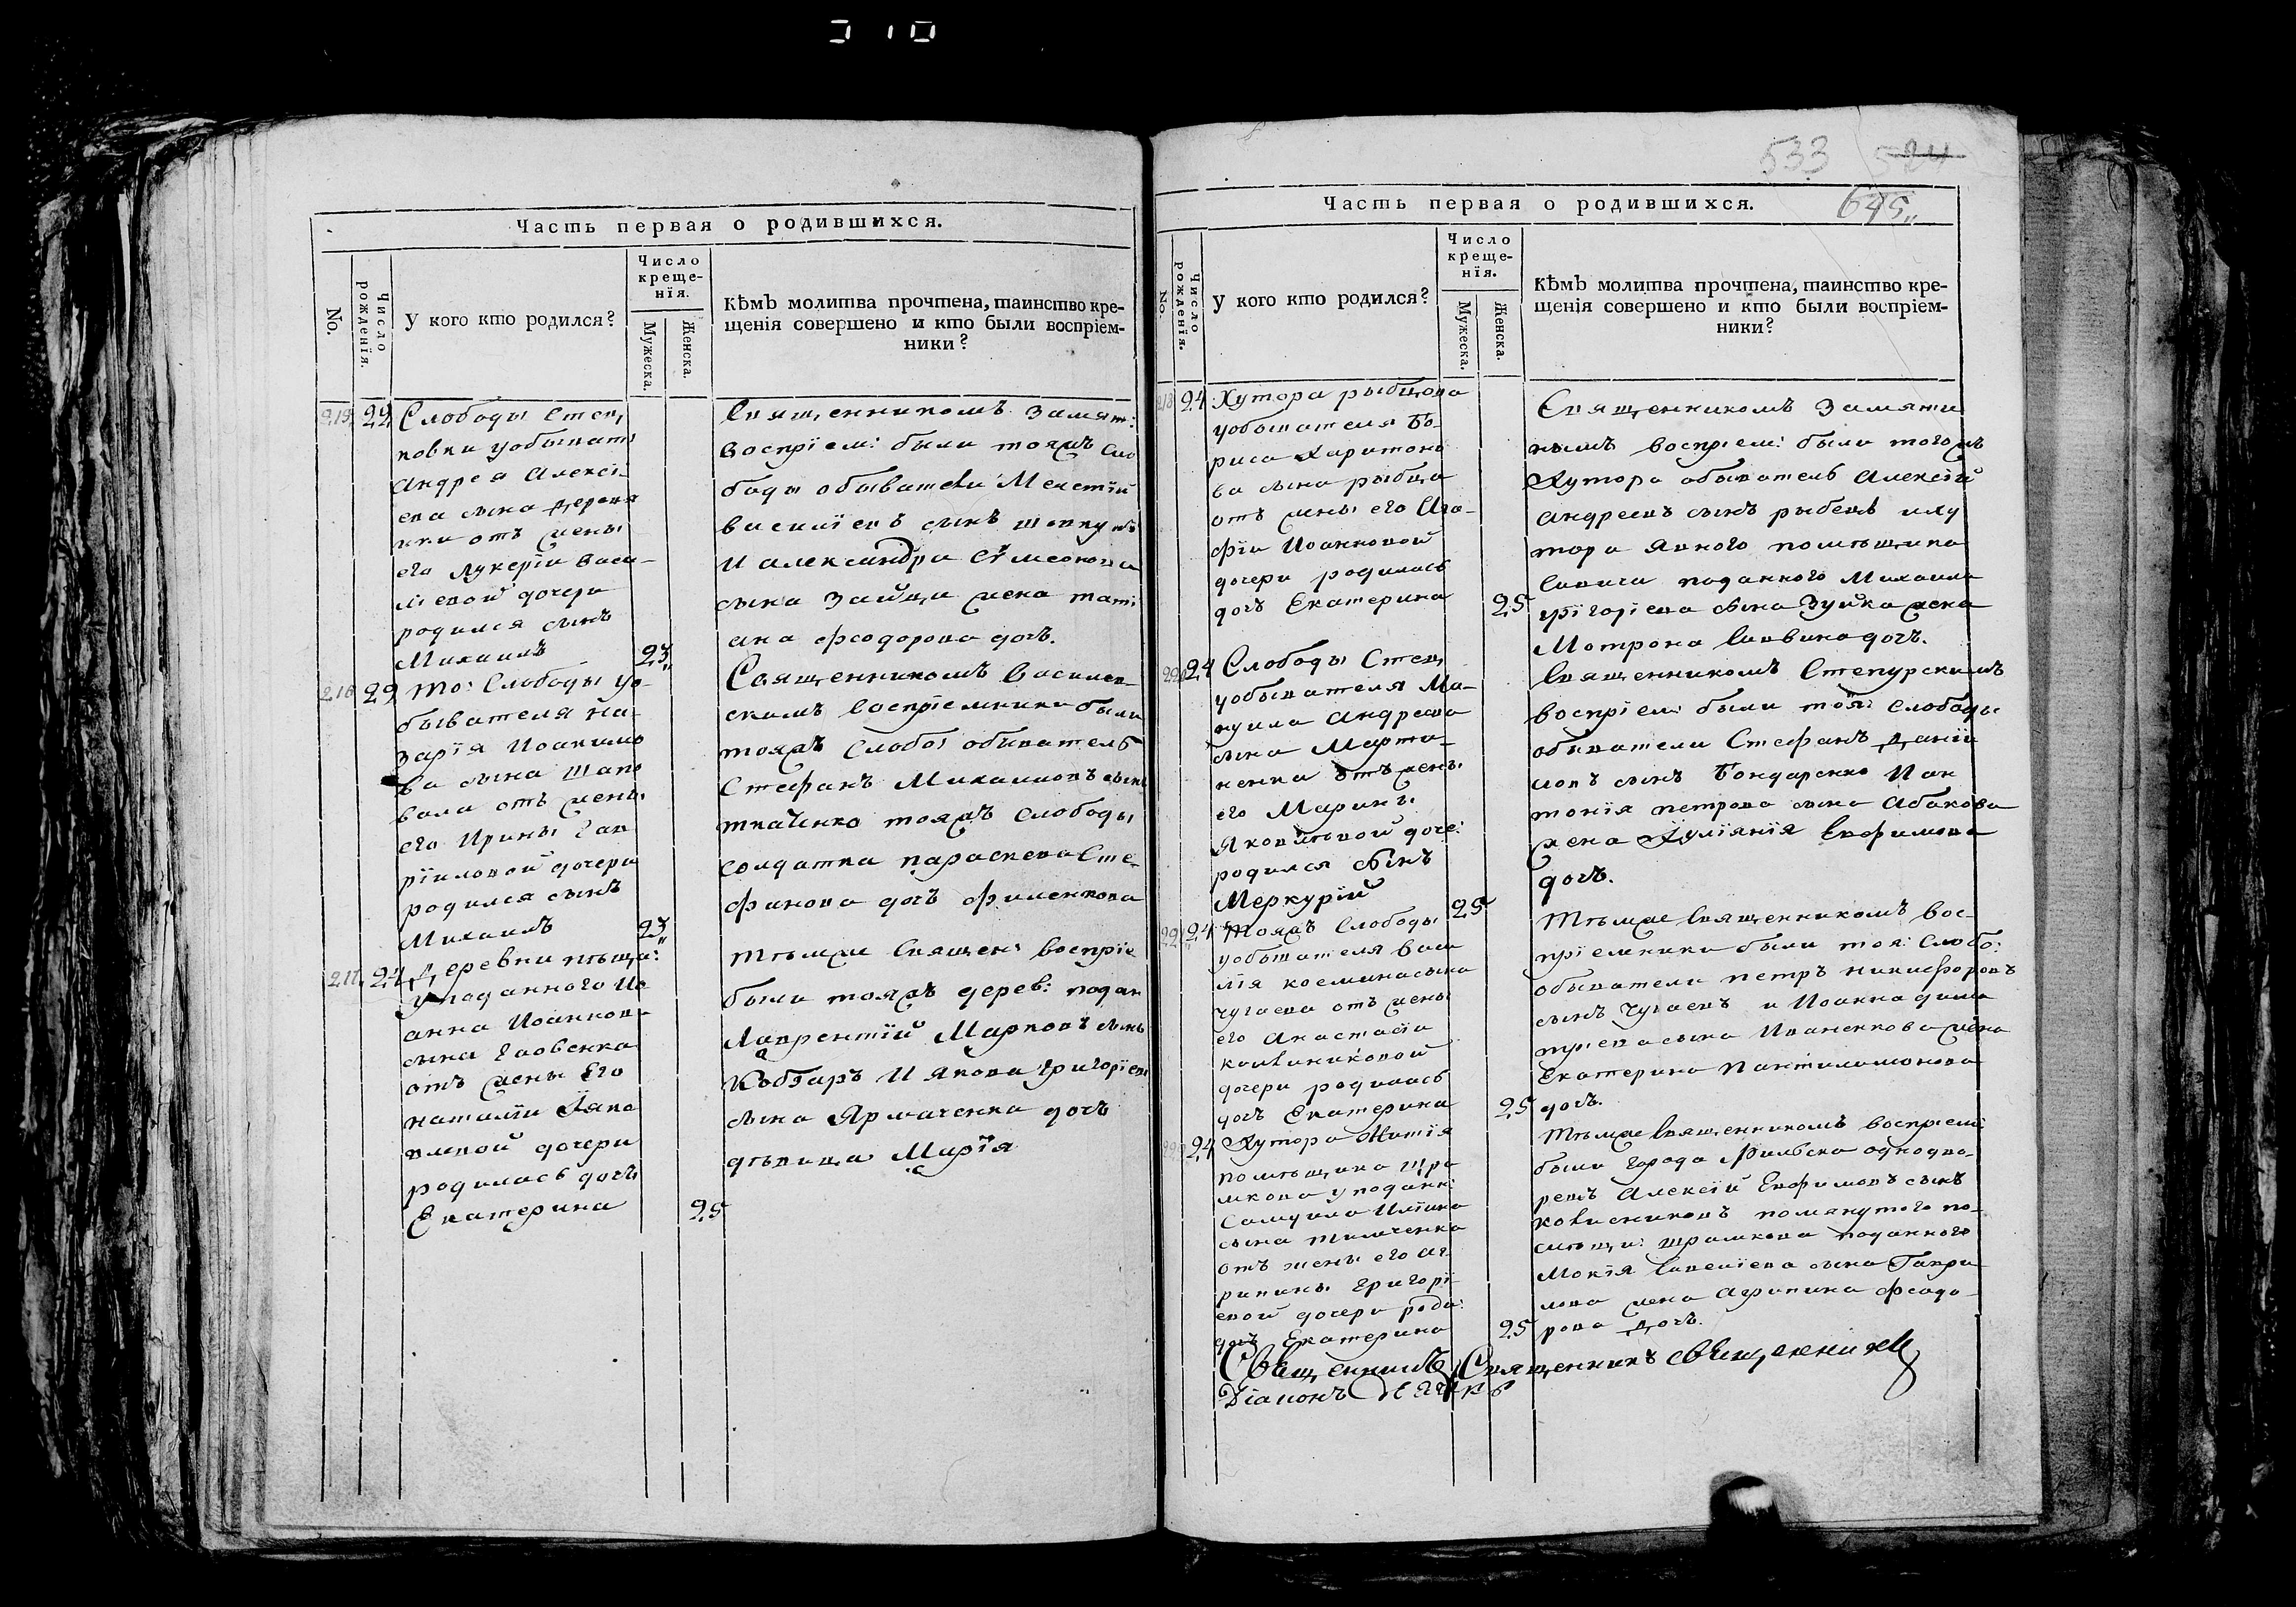 Часть первая о родившихся.
No.
Число рожденія.
У кого кто родился?
Число
креще-
нія.
Мужеска.
Женска.
Кѣмъ молитва прочтена, таинство кре-
щенія совершено и кто были воспріем-
ники?
22 Слободы Степ,
ковки уобыват
Андрея Алексі
ева сына
отъ жены
его Лукеріи Васи-
ліевой дочери
родился сынъ
Михаилъ 23
Священникомъ Замят:
Воспріем: были тояжъ сло
боды обыватели
Василіевъ сынъ
и Александра Сімеонова
сына Зайца жена Таті
ана Феодорова дочь.
216 22 То: Слободы уо-
бывателя На-
зарія Иоакимо
ва сына Шапо
вала отъ жены
его Ирины Гав
ріиловой дочери
родился сынъ
Михаилъ 23
Священникомъ Василев-
скимъ Воспріемники были
тояжъ Слобо: обыватель
Стефанъ Михаиловъ сынъ
Ткаченко тояжъ Слободы
солдатка Параскева Сте-
фанова дочь Филенкова
217 24 Деревни
уподанного Ио
анна Иоаннов-
сына
отъ жены Его
Наталіи Яко
влевой дочери
родилась дочь
Екатерина 25
Тѣмже Священ: воспріе
были тояжъ дерев: подан
Лаврентій Марковъ сынъ
Кобзаръ и Якова Григоріева
сына Ярмаченка дочь
дѣвица Марія
533 524
645
Часть первая о родившихся.
No.
Число рожденія.
У кого кто родился?
Число
креще-
нія.
Мужеска.
Женска.
Кѣмъ молитва прочтена, таинство кре-
щенія совершено и кто были воспріем-
ники?
24 Хутора Рыбцова
уобывателя Бо-
риса Харитоно
ва сына Рыбца
отъ жены его Ага-
фіи Иоанновой
дочери родилась
дочь Екатерина 25
Священникомъ Замяти
нымъ воспріем: были тогожъ
Хутора обыватель Алексій
Андреевъ сынъ Рыбецъ и ху
тора помѣщика
Савича поданного Михаила
Григоріева сына Зуйка жена
Мотрона Саввина дочь.
24 Слободы Степ,
уобывателя Ма-
нуила Андреева
сына Марти-
ненка отъ жены
его Марины
Яковлевой доче:
родился сынъ
Меркурій 25
Священникомъ Степурскимъ
воспріем: были тоя: Слободы
обыватели Стефанъ Даніи
ловъ сынъ Бондаренко и Ан
тонія Петрова сына Абакова
жена Іуліянія Евфимова
дочь.
24 Тояжъ Слободы
уобывателя Васи
лія Косминасына
Чугаева отъ жены
его Анастасіи
дочери родилась
дочь Екатерина 25
Тѣмже Священникомъ Вос-
пріемники были тоя: Слобо:
обыватели Петръ Никифоровъ
сынъ Чугаевъ и Иоанна Дими
тріева сына Иваненкова жена
Екатерина Пантилимонова
дочь.
24 Хутора
помѣщика Шра
мкова уподанн:
Самуила Иліина
сына Тимченка
отъ жены его Аг
рипины Григорі-
евой дочери роди:
дочь Екатерина 25
Тѣмже Священникомъ воспріем:
были города Рильска однодво-
рецъ Алексій Евфимовъ сынъ
помянутого по-
мѣщи: Шрамкова поданного
Мокія Савеліева сына Гаври
лова жена Агрипина Феодо-
рова дочь.
Священникъ Священникъ священникъ
Діаконъ Дячкъ